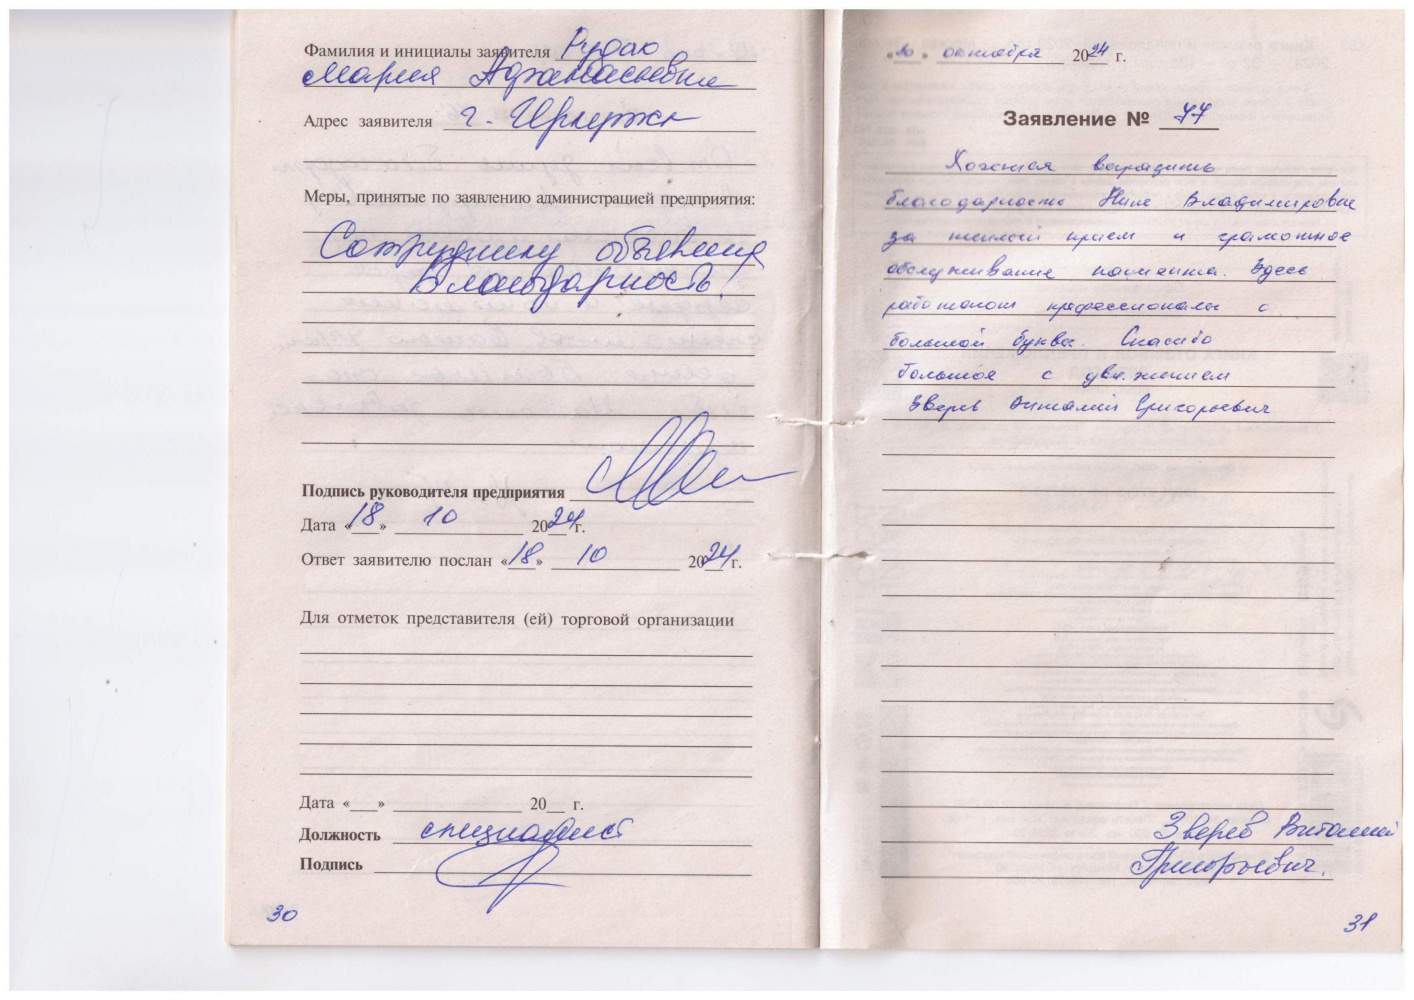 Фамилия и инициалы заявителя Рудаю
Мария Афанасьевна
Адрес заявителя г.
Меры, принятые по заявлению администрацией предприятия:
Сотруднику объявлена
благодарность!
Подпись руководителя предприятия
Дата «18» 10 2024 г.
Ответ заявителю послан «18» 10 2024 г.
Для отметок представителя (ей) торговой организации
Дата «___» ______ 20__ г.
Должность специалист
Подпись
30
октября 2024 г.
Заявление № 77
Хочется выразить
благодарность Нине Владимировне
за теплый прием и грамотное
обслуживание пациента. Здесь
работают профессионалы с
большой буквы. Спасибо
большое с уважением
Зверев Виталий Григорьевич
Зверев Виталий
Григорьевич.
31